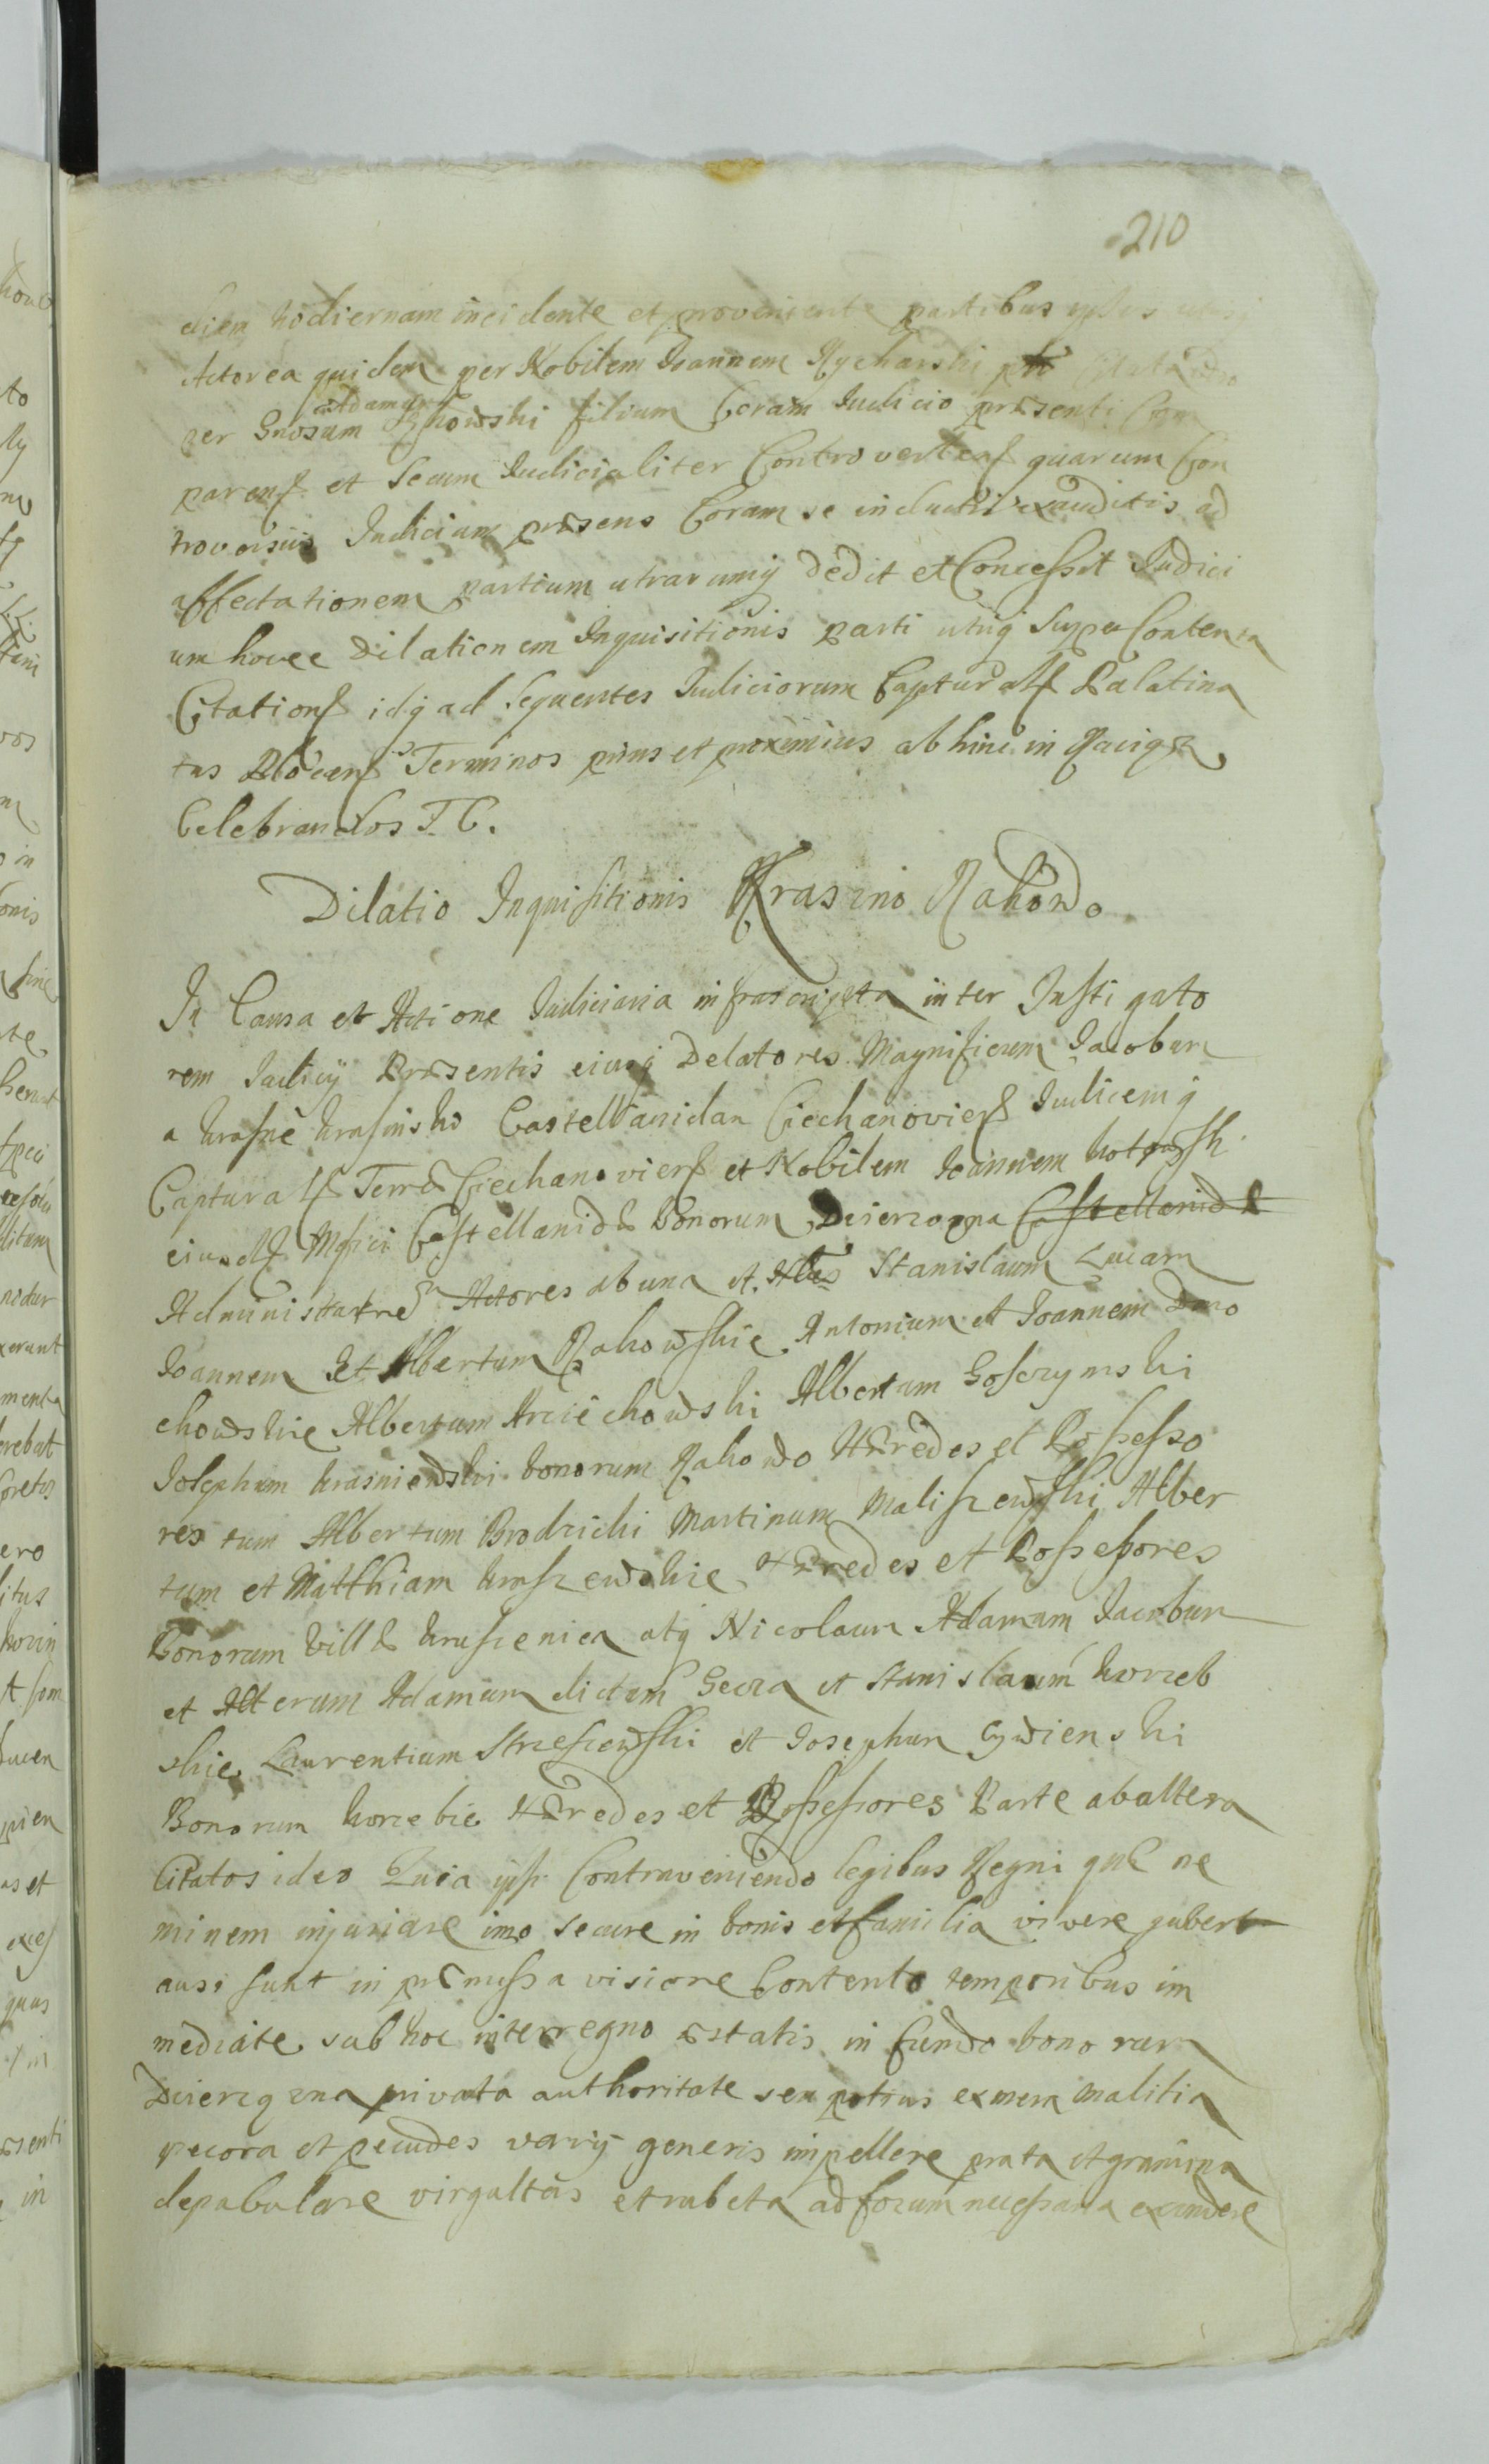 210
diem hodiernam incidente et proveniente partibus
Actorea quidem per Nobilem Joannem Rycharski Citata vero
Adamum
per Gnosum filium Coram Judicio præsenti Com
paren et Secum Judicialiter Controverten quarum Con
troversiis Judicium præsens Coram se inductis exauditis ad
affectationem partium utrarumq dedit et Concessit Judici
um hocce Dilationem Inquisitionis parti utriq Super Contenta
Citation idq ad Sequentes Judiciorum Captural Palatina
tus Plocen Terminos prius et proximius ab hinc in Raciąż
Celebrandos T. C.
Dilatio Inquisitionis Krasino Rakowo
In Causa et Actione Judiciaria infrascripta inter Instigato
rem Judicij Præsentis eiusq Delatores Magnificum Jacobum
a Krasne Krasinski Castellanidam Ciechanovien Judicemq
Captural Terræ Ciechanovien et Nobilem Joannem
eiusd Mgfici Castellanidæ Bonorum Dzierzązna Castellanidæ
Administratore Actores ab una et Nbles Stanislaum Lucam
Joannem Et Albertum Rakowskie Antonium et Joannem Dro
chowskie Albertum Arciechowski Albertum Gosczynski
Josephum Krasniewski bonorum Rakowo Hæredes et Possesso
res tum Albertum Brodzicki Martinum Maliszewski Alber
tum et Matthiam Kraszewskie Hæredes et Possessores
Bonorum Villæ Kraszenica atq Nicolaum Adamum Jacobum
et Alterum Adamum dictum Gecza et Stanislaum Korzeb
skie Laurentium Strzeszewski et Josephum Cywienski
Bonorum Korzebie Hæredes et Possessores Parte ab altera
Citatos ideo Quia ipsi Contraveniendo legibus Regni quæ ne
minem injuriare imo secure in bonis et familia vivere jubent
ausi sunt in præmissa visione Contento temporibus im
mediate sub hoc interregno æstatis in fundo bonorum
Dzierzązna privata authoritate seu potius ex mera malitia
pecora et pecudes varij generis impellere prata et gramina
depabulare virgultas et rubeta ad forum necessaria excindere